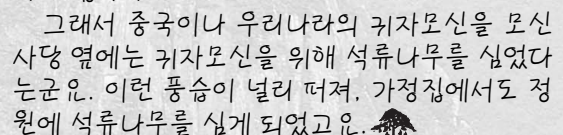 그래서 중국이나 우리나라의 귀자모신을 모신
사당 옆에는 귀자모신을 위해 석류나무를 심었다
는군요. 이런 풍습이 널리 퍼져, 가정집에서도 정
원에 석류나무를 심게 되었고요.